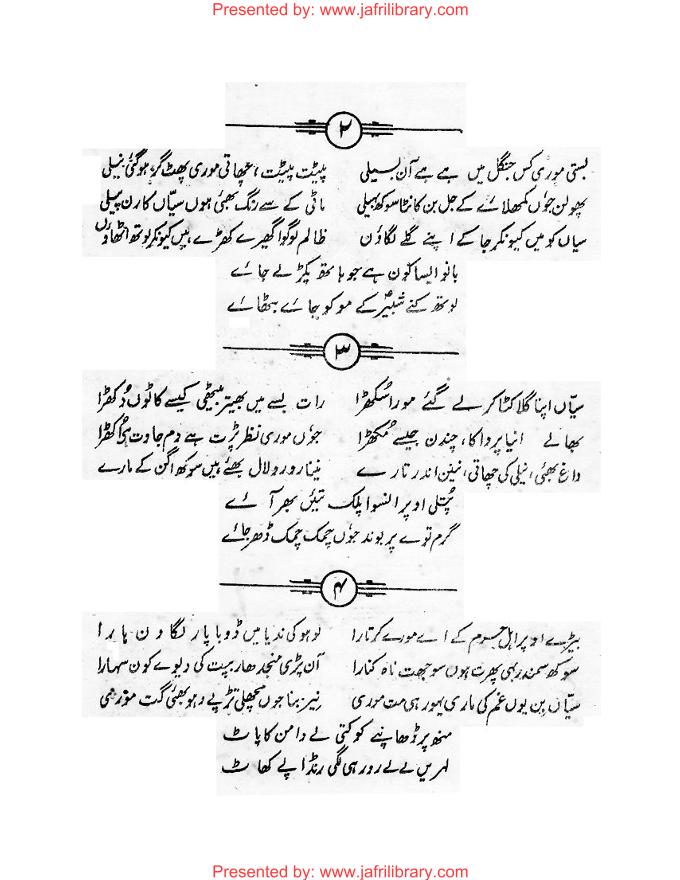 Presented by: www.jafrilibrary.com
۲
بستی موری کس جنگل میں ہے ہے آن بسیلی پیٹت پیٹت، چھاتی موری پھٹ گئی ہوگئی نیلی
پھولن جوں کمھلائے کے جل بن کانٹا سوکھ پیلی ماٹی کے سے رنگ بھئی ہوں سیّاں کارن پیلی
سیاں کو میں کیونکر جا کے اپنے گلے لگاؤں ظالم لوگوا گھیرے کھڑے ہیں کیونکر لوتھ اٹھاؤں
بانو ایسا کون ہے جو ہاتھ پکڑ لے جائے
لوتھ کنے شبیرؑ کے موکو جائے بٹھائے
۳
سیّاں اپنا گلا کٹا کر لے گئے مورا سکھڑا رات بسے میں بھیتر بیٹھی کیسے کاٹوں دُکھڑا
بھالے انیا پر واکا، چندن جیسے مُکھڑا جوں موری نظر پڑت ہے دم جاوت ہی اُکھڑا
داغ بھئی انیلی کی چھاتی، نین اندر تارے نینا رو رو لال بھئے ہیں سوکھ اگن کے مارے
پُتلی اوپر انسوا پلک تئیں بھر آئے
گرم توے پر بوند جوں چمک چمک ڈھر جائے
۴
بیڑے اوپر اہل حرم کے اے مورے کرتارا لوہو کی ندیا میں ڈوبا پار لگاون ہارا
سوکھ سمندر بہی پھرت ہوں سوجھت ناہ کنارا آن پڑی منجدھار بپت کی دیوے کون سہارا
سیّاں بن یوں غم کی ماری بہور ہی مت موری نیر بنا جوں مچھلی تڑپے رہو بھئی گت موری
منھ پر ڈھانپنے کو کتی لے دامن کا پاٹ
لہریں لے لے رو رہی لگی رنڈاپے گھاٹ
Presented by: www.jafrilibrary.com